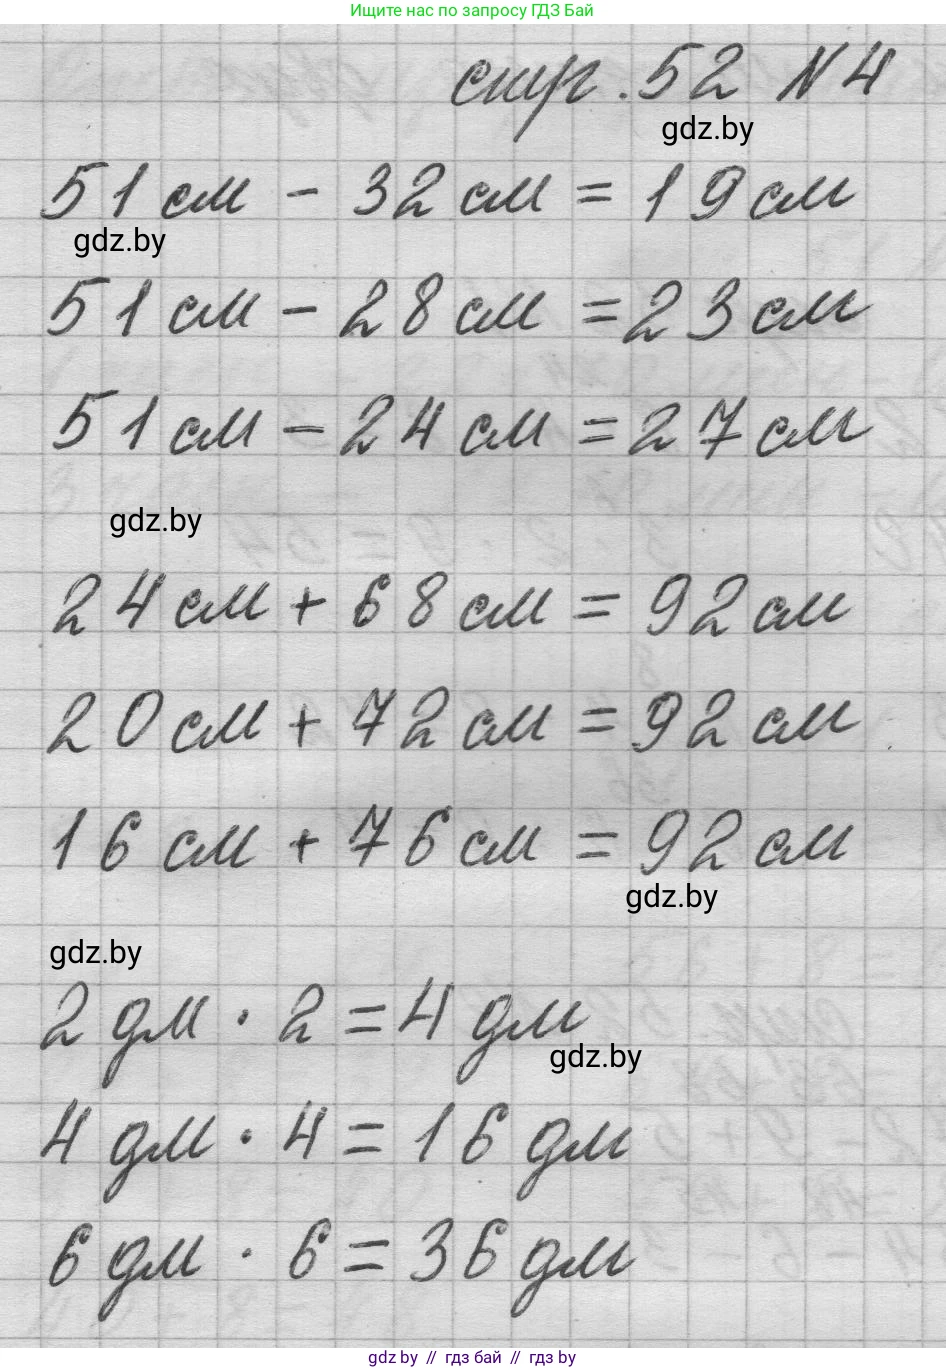 Ищите нас по запросу ГДЗ Бай
стр. 52 N 4
gdz.by
51 см - 32 см = 19 см
gdz.by
51 см - 28 см = 23 см
51 см - 24 см = 27 см
gdz.by
24 см + 68 см = 92 см
20 см + 72 см = 92 см
16 см + 76 см = 92 см
gdz.by
gdz.by
2 дм · 2 = 4 дм
gdz.by
4 дм · 4 = 16 дм
6 дм · 6 = 36 дм
gdz by // гдз бай // гдз by